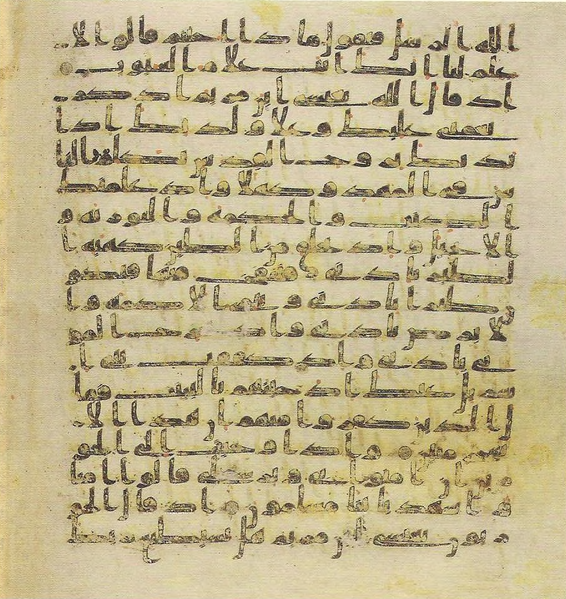 الله الرسل فيقول ماذا اجبتم قالوا لا
علم لنا انك انت علم الغيوب
اذ قال الله يعيسى ابن مريم اذكر
نعمتي عليك وعلى ولدتك اذ ا
يدتك بروح القدس تكلم النا
س في المهد وكهلا واذ علمتك
الكتب والحكمة والتورية و
الانجيل واذ تخلق من الطين كهية ا
لطير باذني فتنفخ فيها فتكو
ن طيرا باذني وتبرى الاكمه وا
لابرص باذني واذ تخرج المو
تى باذني واذ كففت بني ا
سريل عنك اذ جئتهم بالبينت فقا
ل الذين كفروا منهم ان هذا الا
سحر مبين واذ اوحيت الى الحو
ارين ان امنوا بي وبرسولي قالوا امنا
واشهد باننا مسلمون اذ قال الحو
اريون يعيسى ابن مريم هل يستطيع ربك